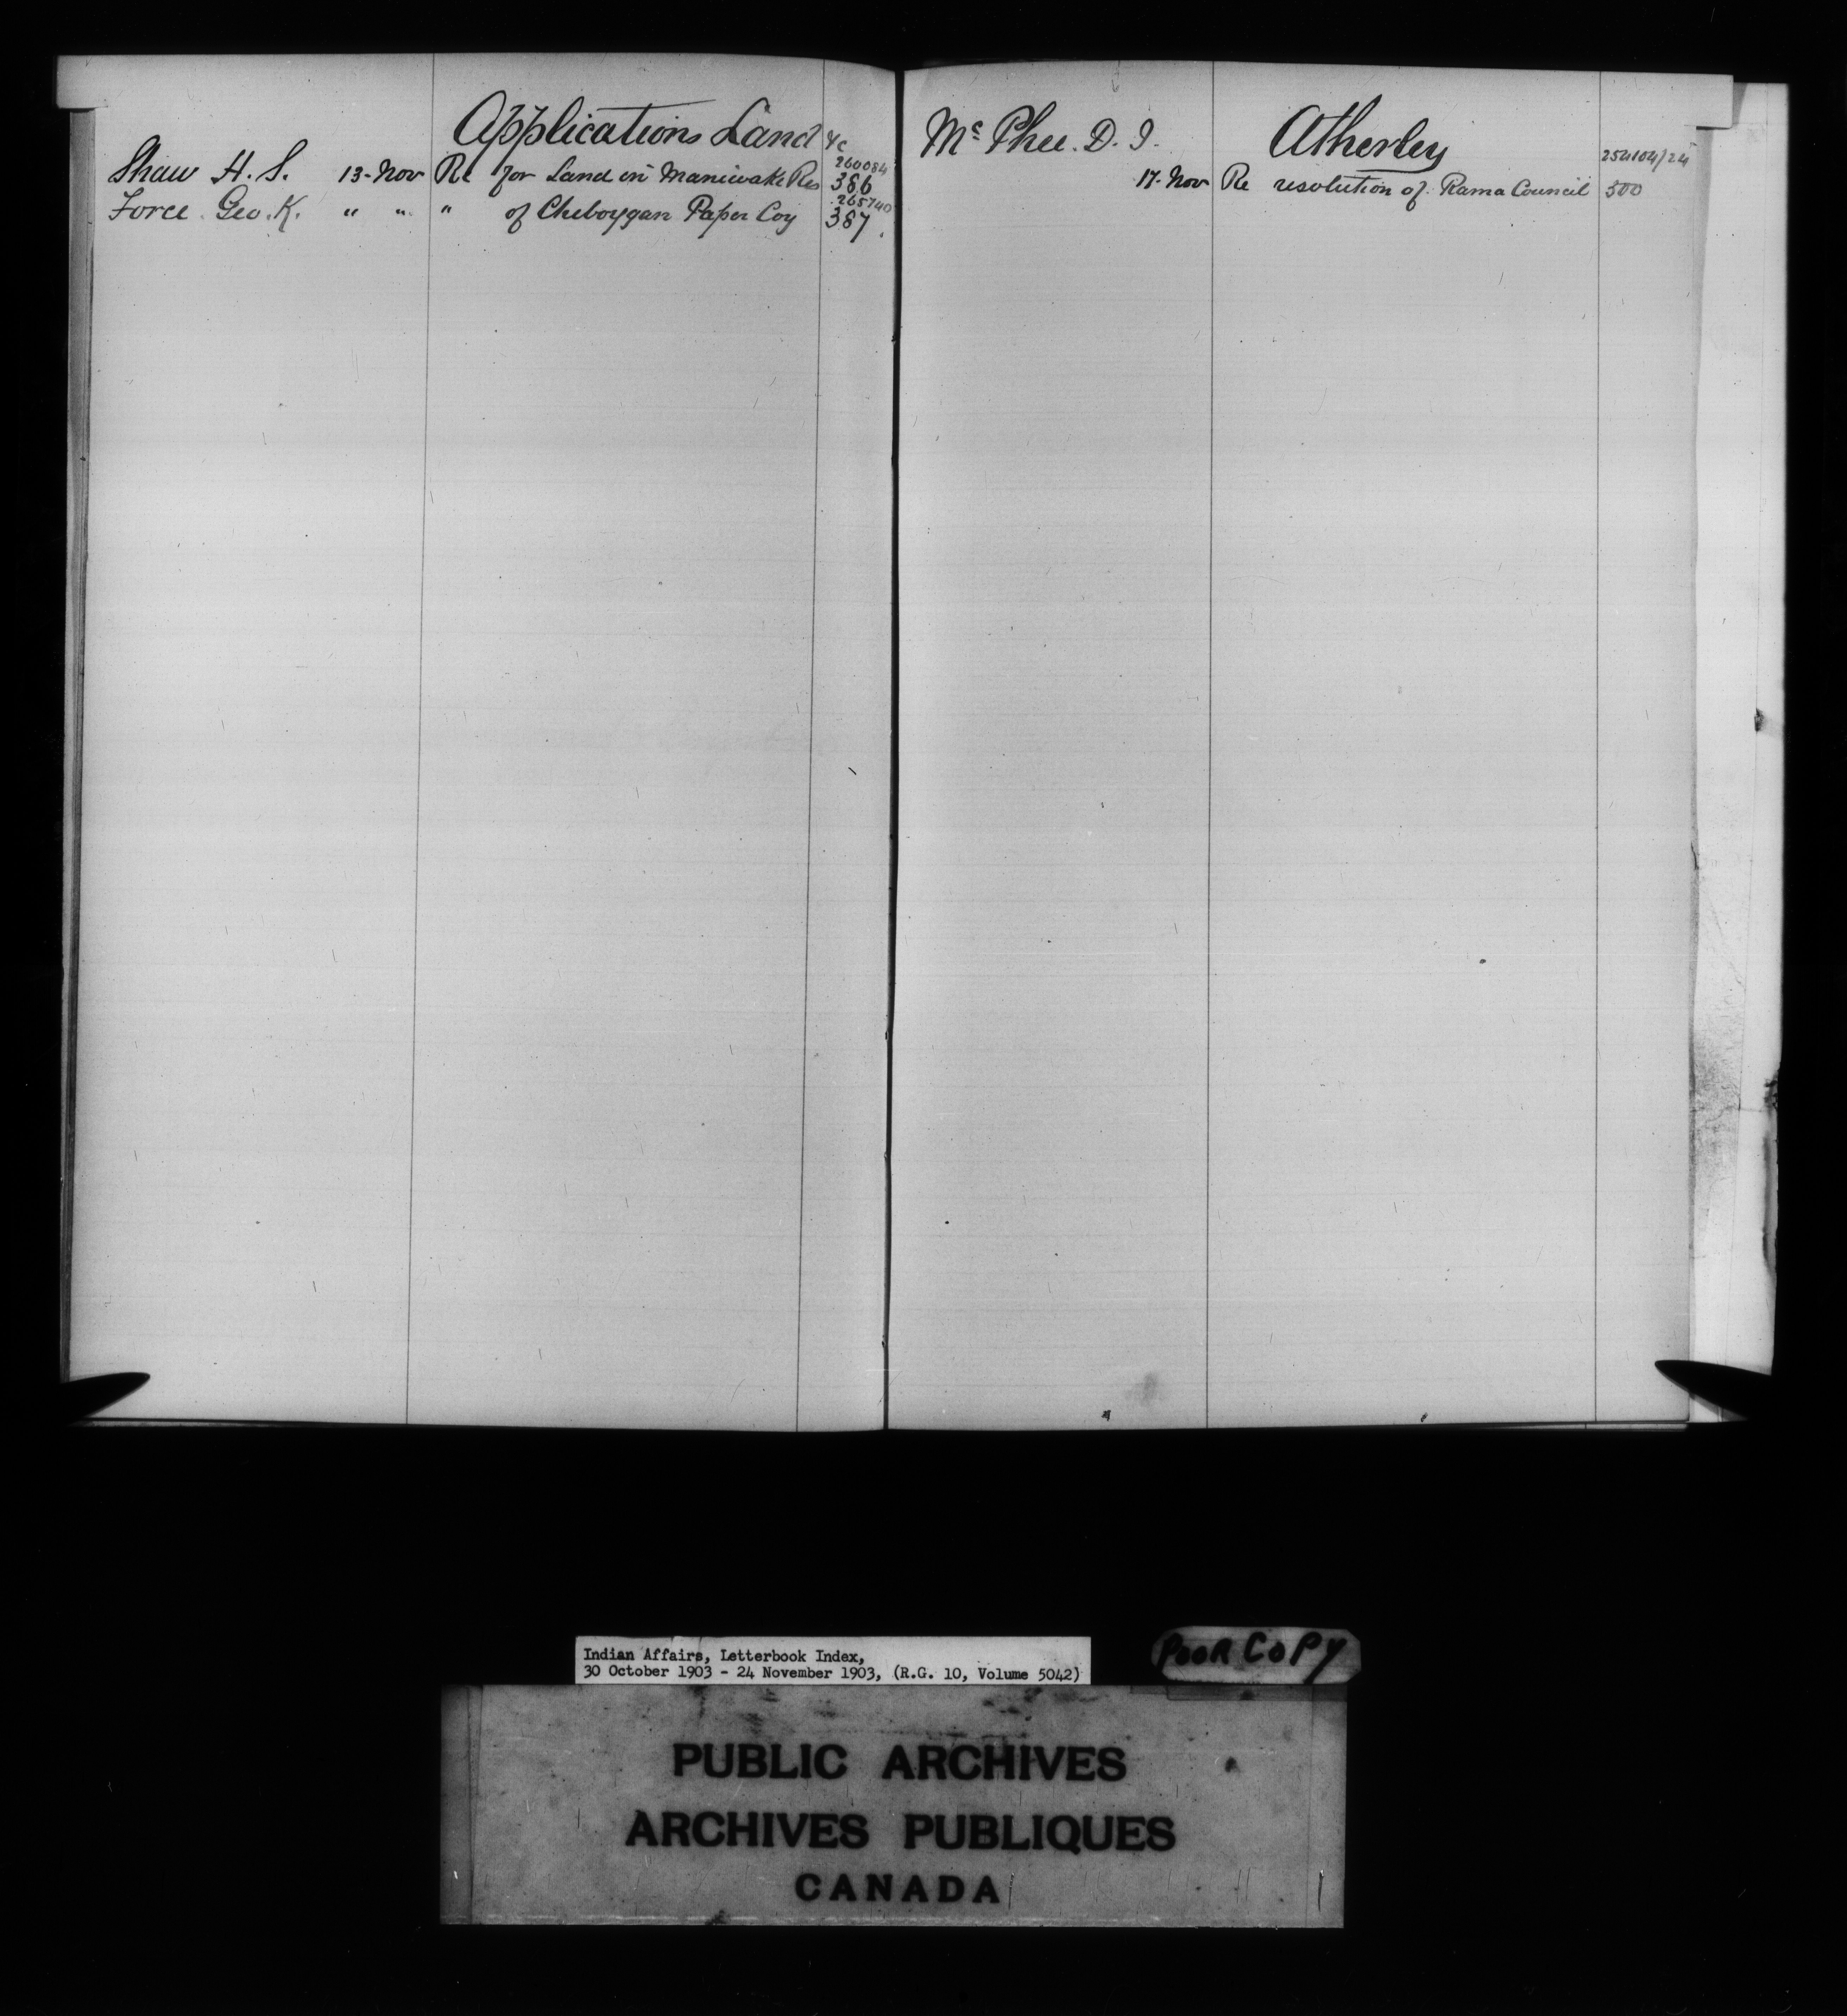 Applications Land &c
260084
Shaw H. S. 13-Nov Re for Land in Maniwaki Res 386
265740
Force. Geo. K. " " " of Cheboygan Paper Coy 387.
Mc Phee. D. J. Atherley
254104/24
17-Nov Re resolution of Rama Council 500
Indian Affairs, Letterbook Index,
30 October 1903 - 24 November 1903, (R.G. 10, Volume 5042)
POOR COPY
PUBLIC ARCHIVES
ARCHIVES PUBLIQUES
CANADA